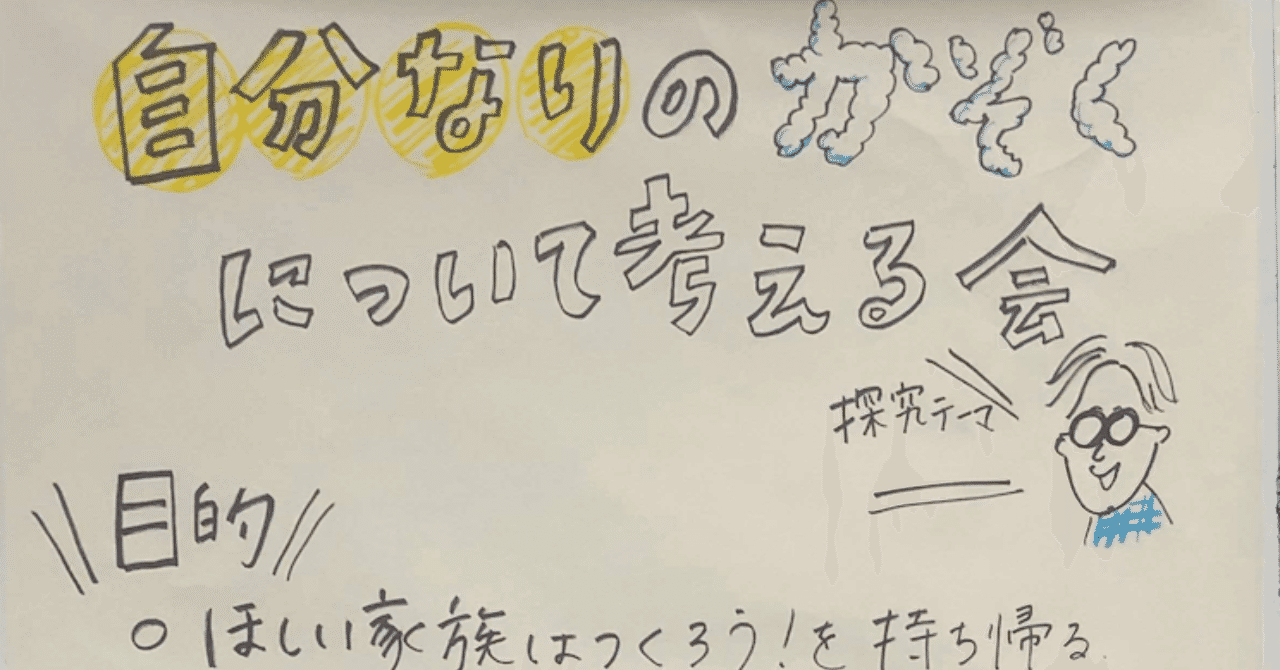 自分なりのかぞく
について考える会
探究テーマ
目的
○ ほしい家族はつくろう!を持ち帰る